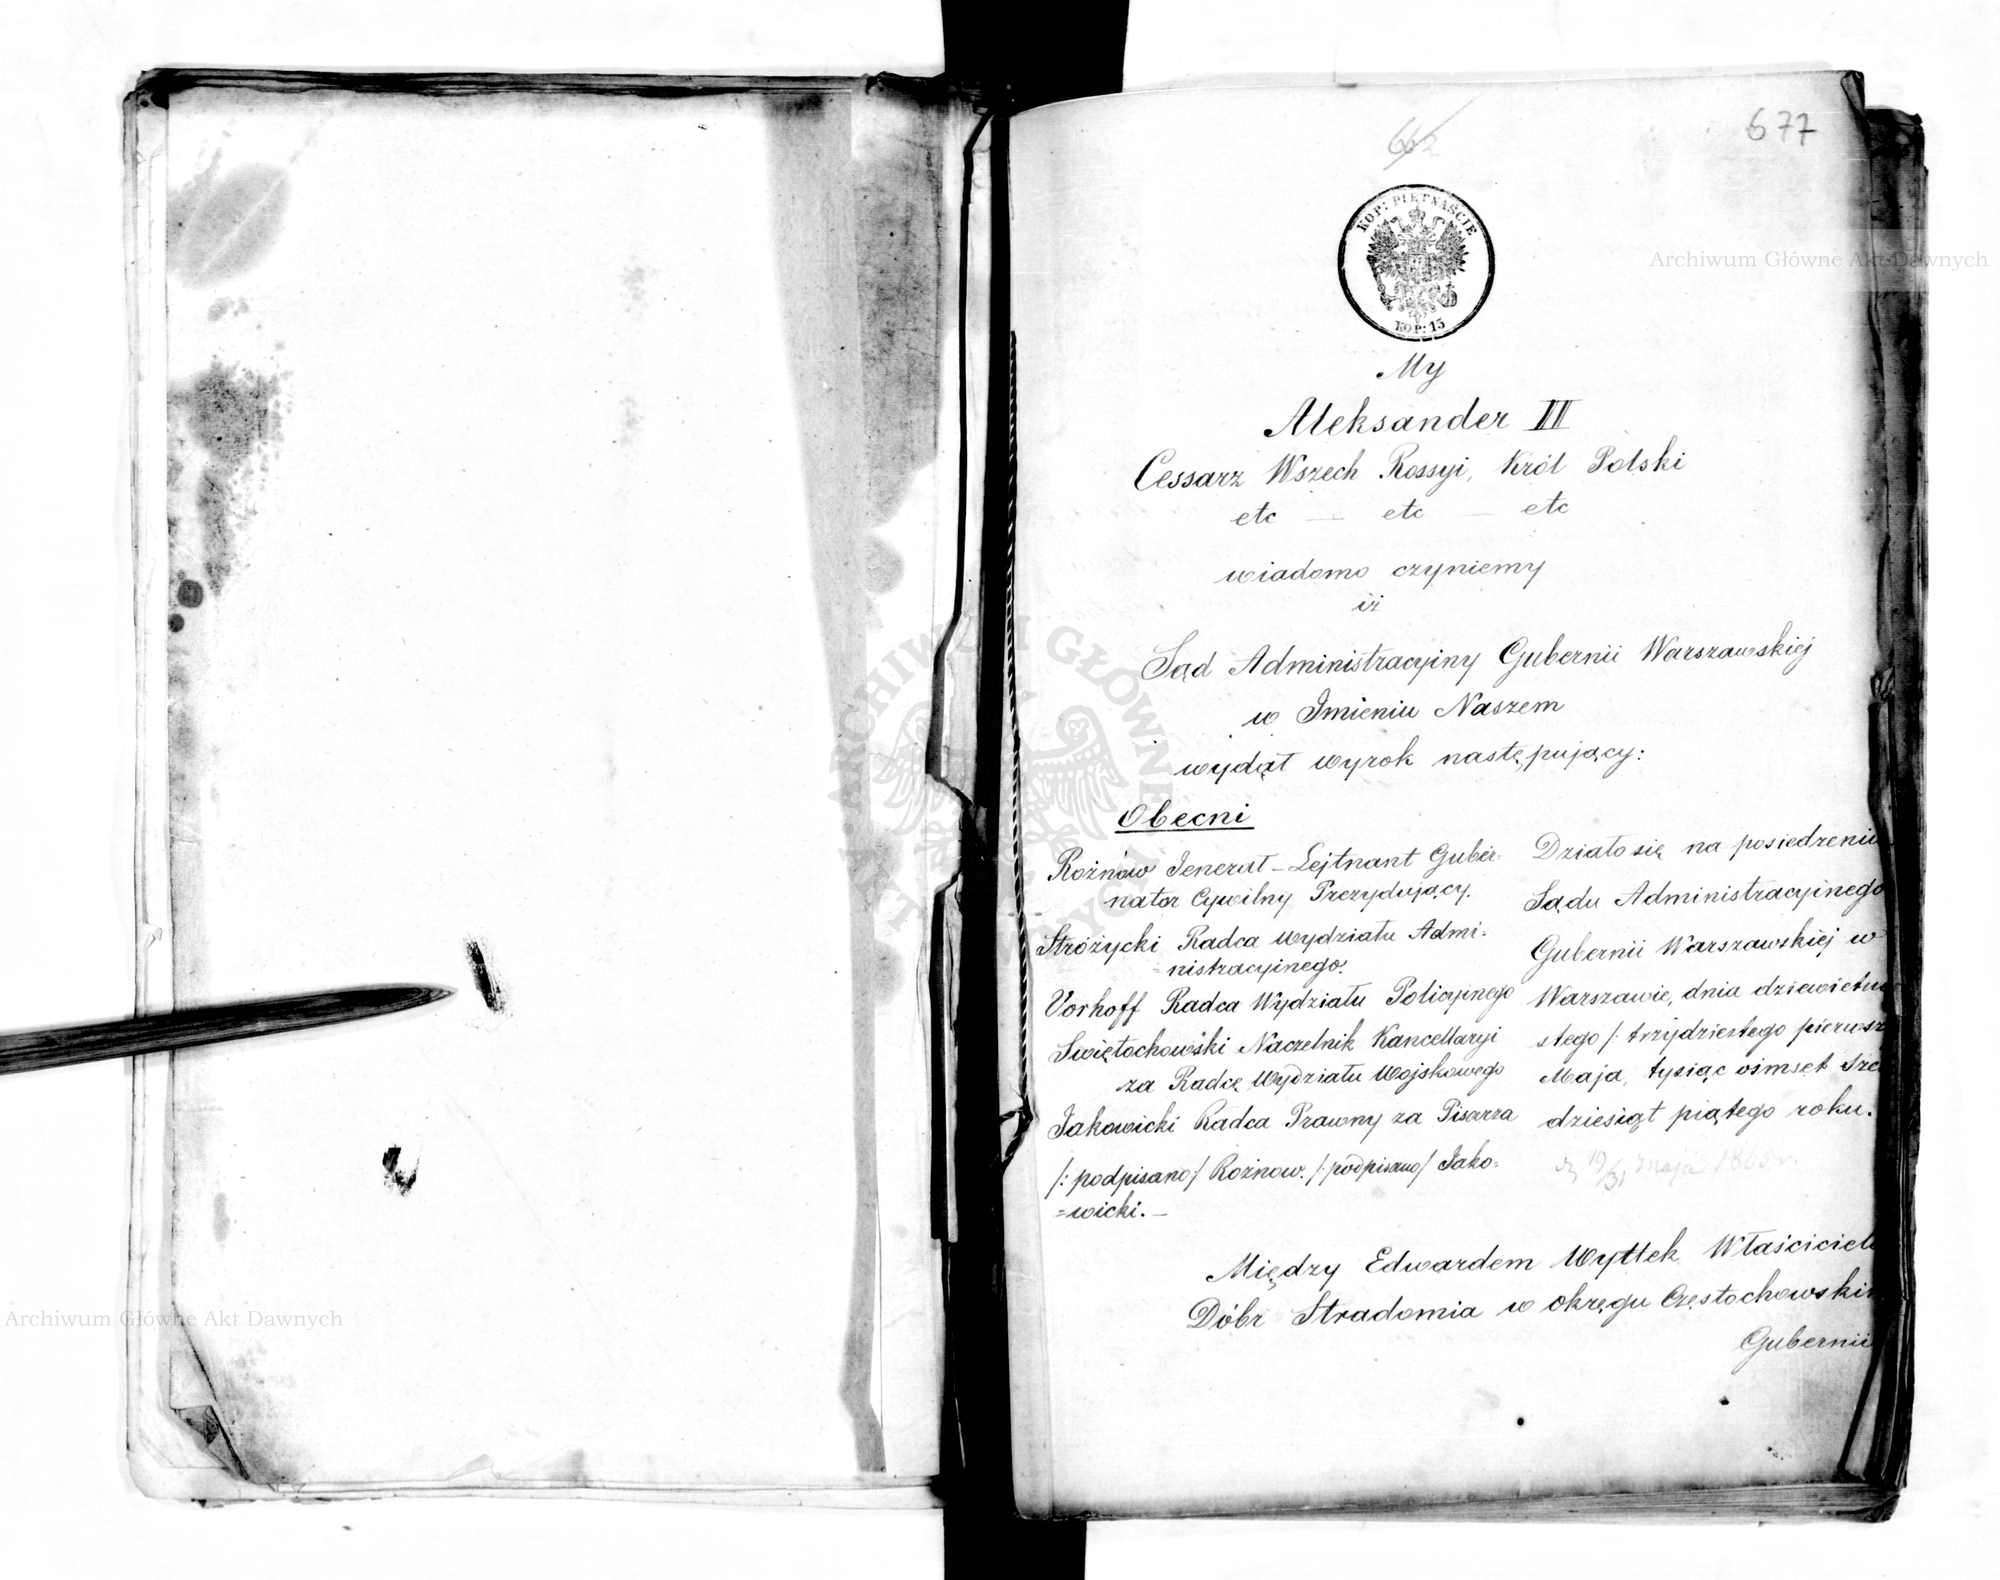 677
662
KOP: PIĘTNAŚCIE
KOP: 15
My
Aleksander III
Cessarz Wszech Rossyi, Król Polski
etc — etc — etc
wiadomo czyniemy
iż
Sąd Administracyiny Gubernii Warszawskiej
w Imieniu Naszem
wydał wyrok następujący:
Obecni
Rożnow Jenerał-Lejtnant Guber:
nator Cywilny Prezydujący.
Stróżycki Radca Wydziału Admi:
=nistracyinego.
Vorhoff Radca Wydziału Policyinego
Swiętochowski Naczelnik Kancellaryi
za Radcę Wydziału Wojskowego
Jakowicki Radca Prawny za Pisarza
/: podpisano/ Rożnow. /: podpisano/ Jako:
=wicki. —
Działo się na posiedzeniu
Sądu Administracyinego
Gubernii Warszawskiej w
Warszawie, dnia dziewietna
stego /: trzydziestego pierwsz
Maja, tysiąc ośmset sze
dziesiąt piątego roku.
d. 19/31 maja 1865 r.
Między Edwardem Wyttek Właściciele
Dóbr Stradomia w okręgu Częstochowskim
Gubernii
Archiwum Główne Akt Dawnych
Archiwum Główne Akt Dawnych
ARCHIWUM GŁÓWNE AKT DAWNYCH